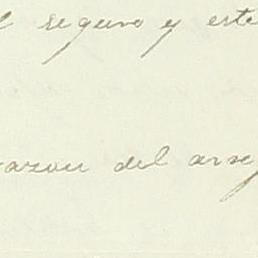 l seguro y este
razon del arse